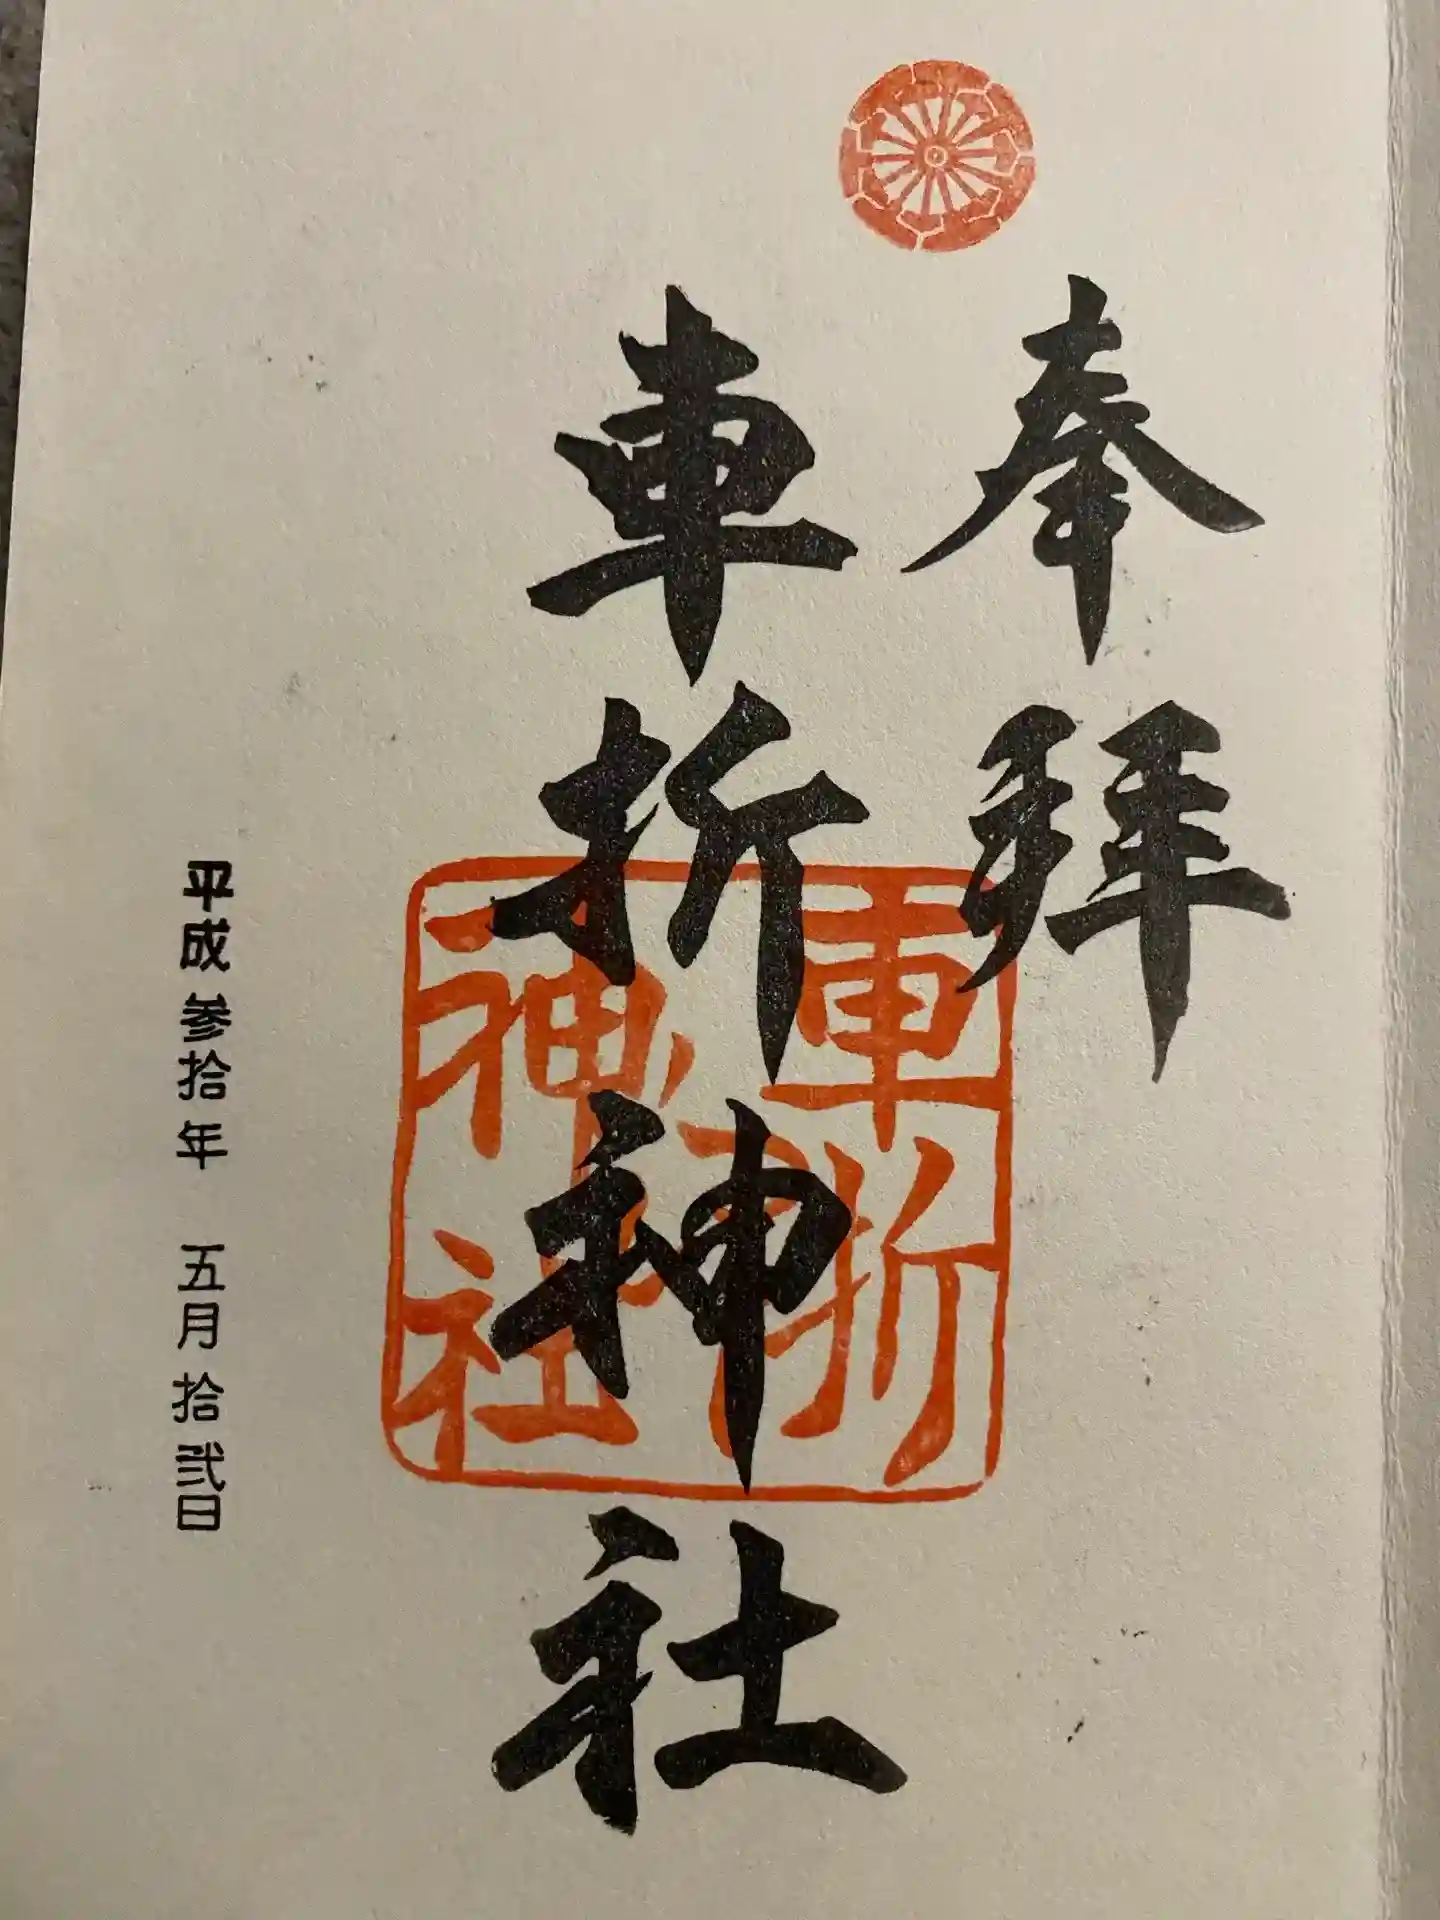 奉拜
車折神社
車折
神社
平成参拾年 五月拾弐日